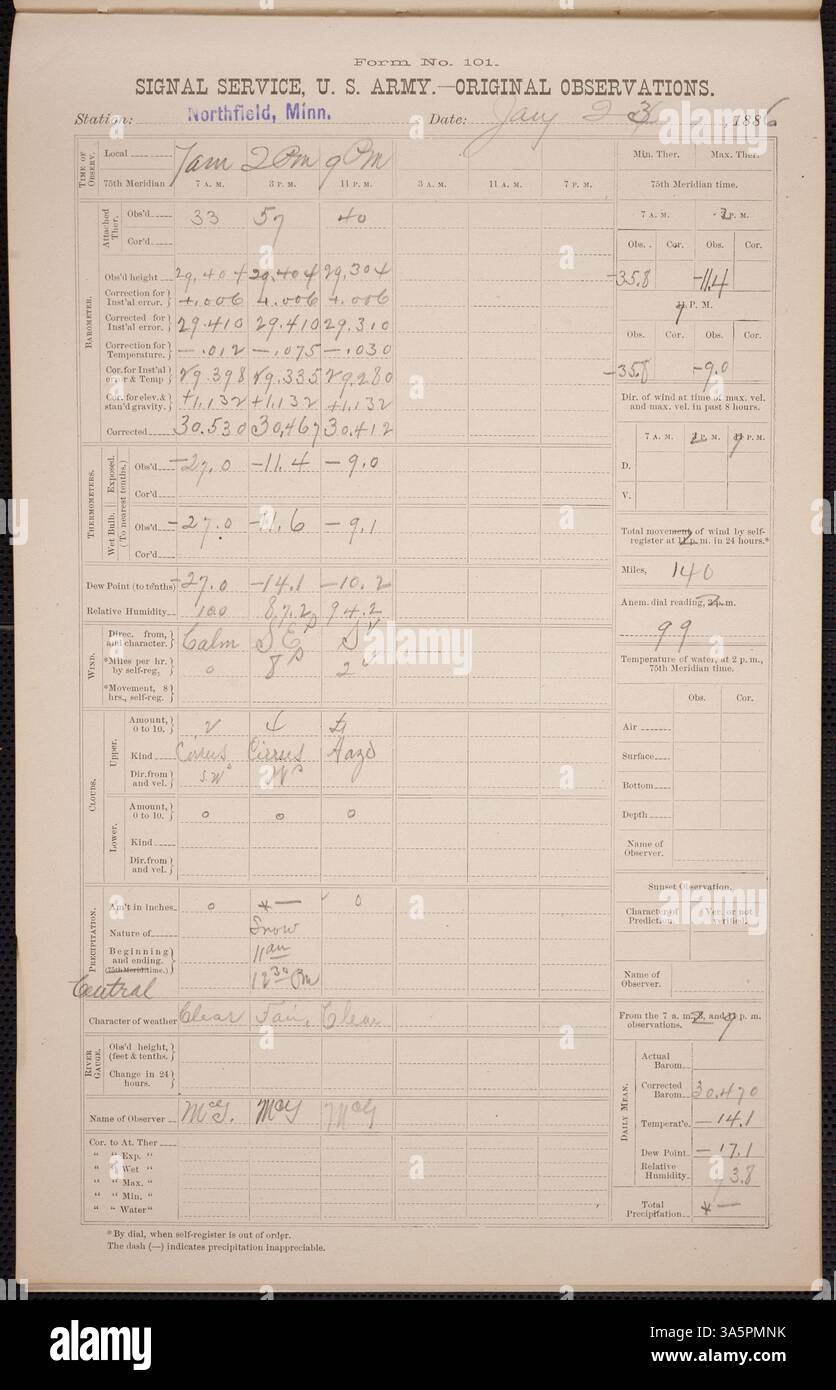 Form No. 101.
SIGNAL SERVICE, U. S. ARMY.—ORIGINAL OBSERVATIONS.
Station: Northfield, Minn. Date: Jany 23, 1886
TIME OF OBSERV. Local 7 am 2 Pm 9 Pm Min. Ther. Max. Ther.
75th Meridian 7 A. M. 3 P. M. 11 P. M. 3 A. M. 11 A. M. 7 P. M. 75th Meridian time.
Attached Ther. Obs'd 33 57 40 7 A. M. P. M.
Cor'd Obs. Cor. Obs. Cor.
BAROMETER. Obs'd height 29.404 29.404 29.304 -35.8 -11.4
Correction for Inst'al error. +.006 +.006 +.006 P. M.
Corrected for Inst'al error. 29.410 29.410 29.310 Obs. Cor. Obs. Cor.
Correction for Temperature. —.012 —.075 —.030
Cor. for Inst'al error & Temp 29.398 29.335 29.280 -35.8 -9.0
Cor. for elev. & stan'd gravity. +1.132 +1.132 +1.132 Dir. of wind at time of max. vel. and max. vel. in past 8 hours.
Corrected 30.530 30.467 30.412
THERMOMETERS. (To nearest tenths.) 7 A. M. P. M. P. M.
Exposed. Obs'd -27.0 -11.4 -9.0 D.
Cor'd V.
Wet Bulb. Obs'd -27.0 -11.6 -9.1 Total movement of wind by self-register at p. m. in 24 hours.*
Cor'd Miles, 140
Dew Point (to tenths) -27.0 -14.1 -10.2 Anem. dial reading, m.
Relative Humidity 100 87.2 94.2 99
WIND. Direc. from, and character. Calm SE S Temperature of water, at 2 p. m., 75th Meridian time.
*Miles per hr. by self-reg, 0 8 2
*Movement, 8 hrs., self-reg. Obs. Cor.
CLOUDS. Upper. Amount, 0 to 10. 2 4 Air
Kind Cirrus Cirrus Haze Surface
Dir. from and vel. S.W W Bottom
Lower. Amount, 0 to 10. 0 0 0 Depth
Kind Name of Observer.
Dir. from and vel.
Sunset Observation.
PRECIPITATION. Am't in inches 0 * — 0 Character of Prediction. Ver. or not verified.
Nature of Snow
Beginning and ending. 11 am
(75th Merid. time.) 12 30 Pm Name of Observer.
Central
Character of weather Clear Fair, Clear From the 7 a. m. 2, and 9 p. m. observations.
RIVER GAUGE. Obs'd height, (feet & tenths. DAILY MEAN. Actual Barom.
Change in 24 hours. Corrected Barom. 30.470
Name of Observer McG. McG McG Temperat'e. -14.1
Cor. to At. Ther Dew Point. -17.1
“ “ Exp. “ Relative Humidity. 93.8
“ “ Wet “
“ “ Max. “
“ “ Min. “ Total Precipitation * —
“ “ Water “
*By dial, when self-register is out of order.
The dash (—) indicates precipitation inappreciable.
alamy
a
alamy
Image ID: 3A5PMNK
www.alamy.com